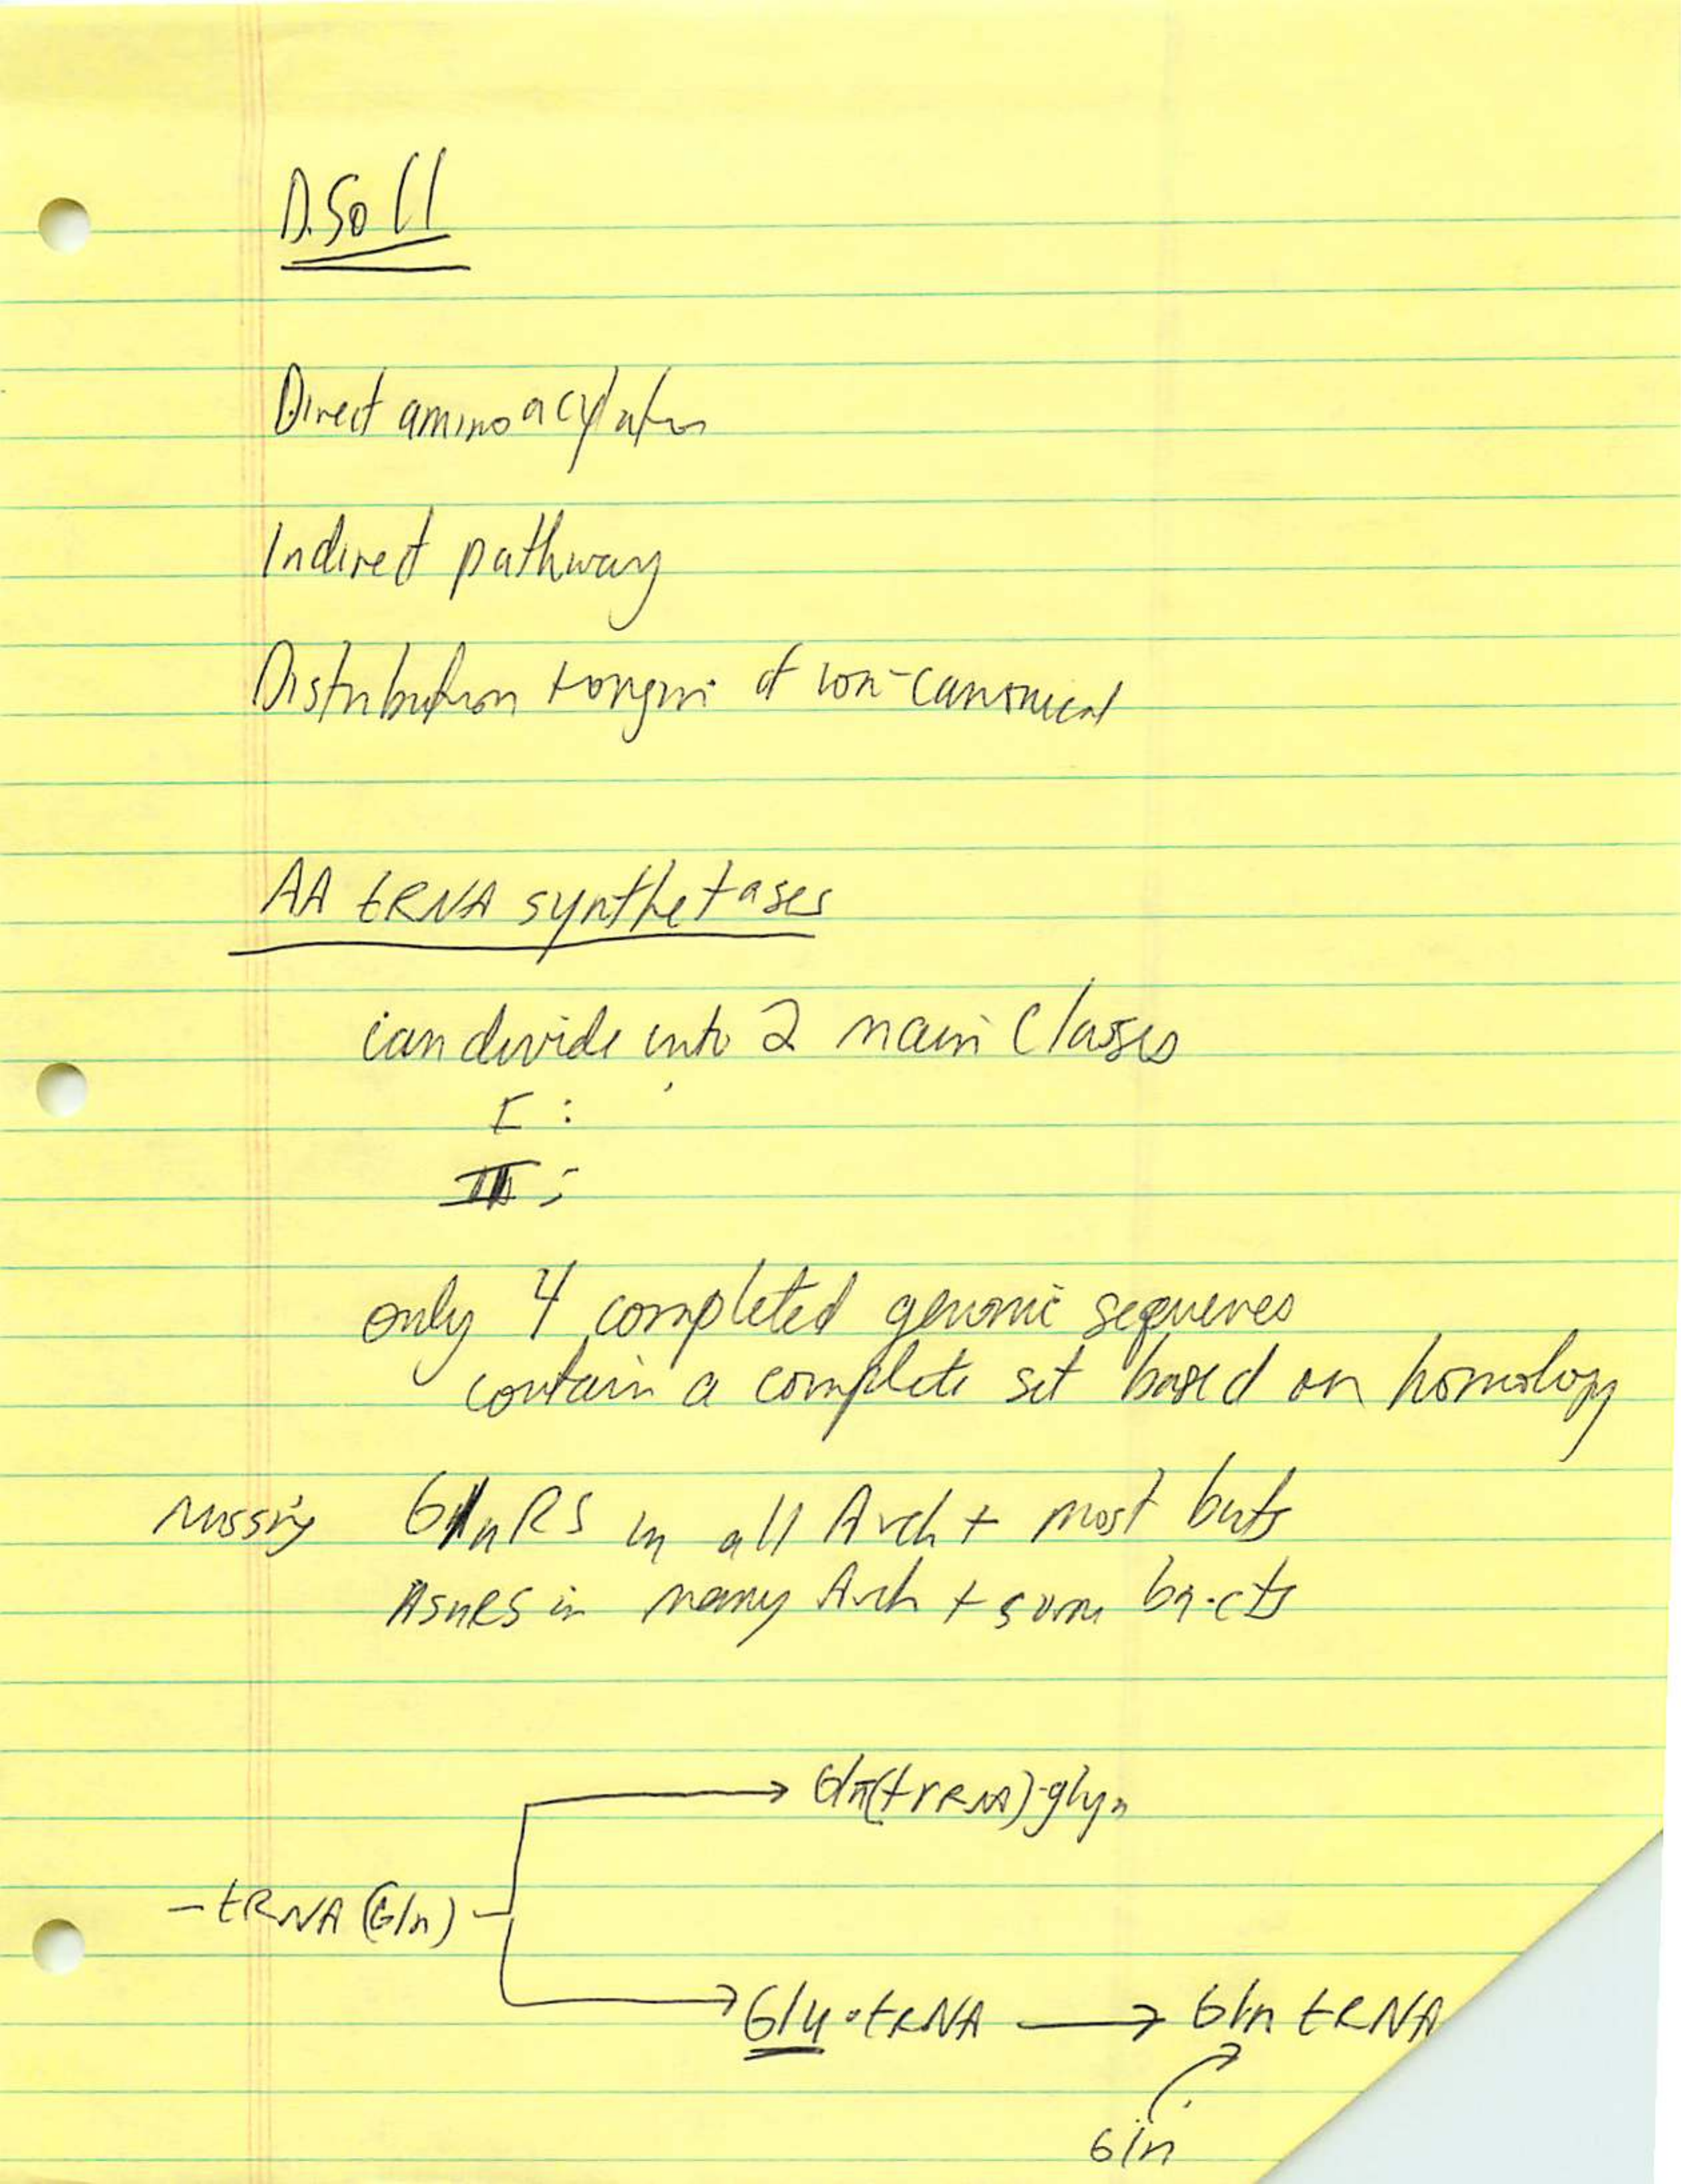 D. Soll
Direct aminoacylation
Indirect pathway
Distribution + origin of non-canonical
AA tRNA synthetases
can divide into 2 main classes
I :
II :
only 4 completed genomic sequences
contain a complete set based on homology
missing GlnRS in all Arch + most bacts
AsnRS in many Arch + some bacts
Gln(tRNA)
- tRNA (Gln)
Glu-tRNA → Gln tRNA
Gln